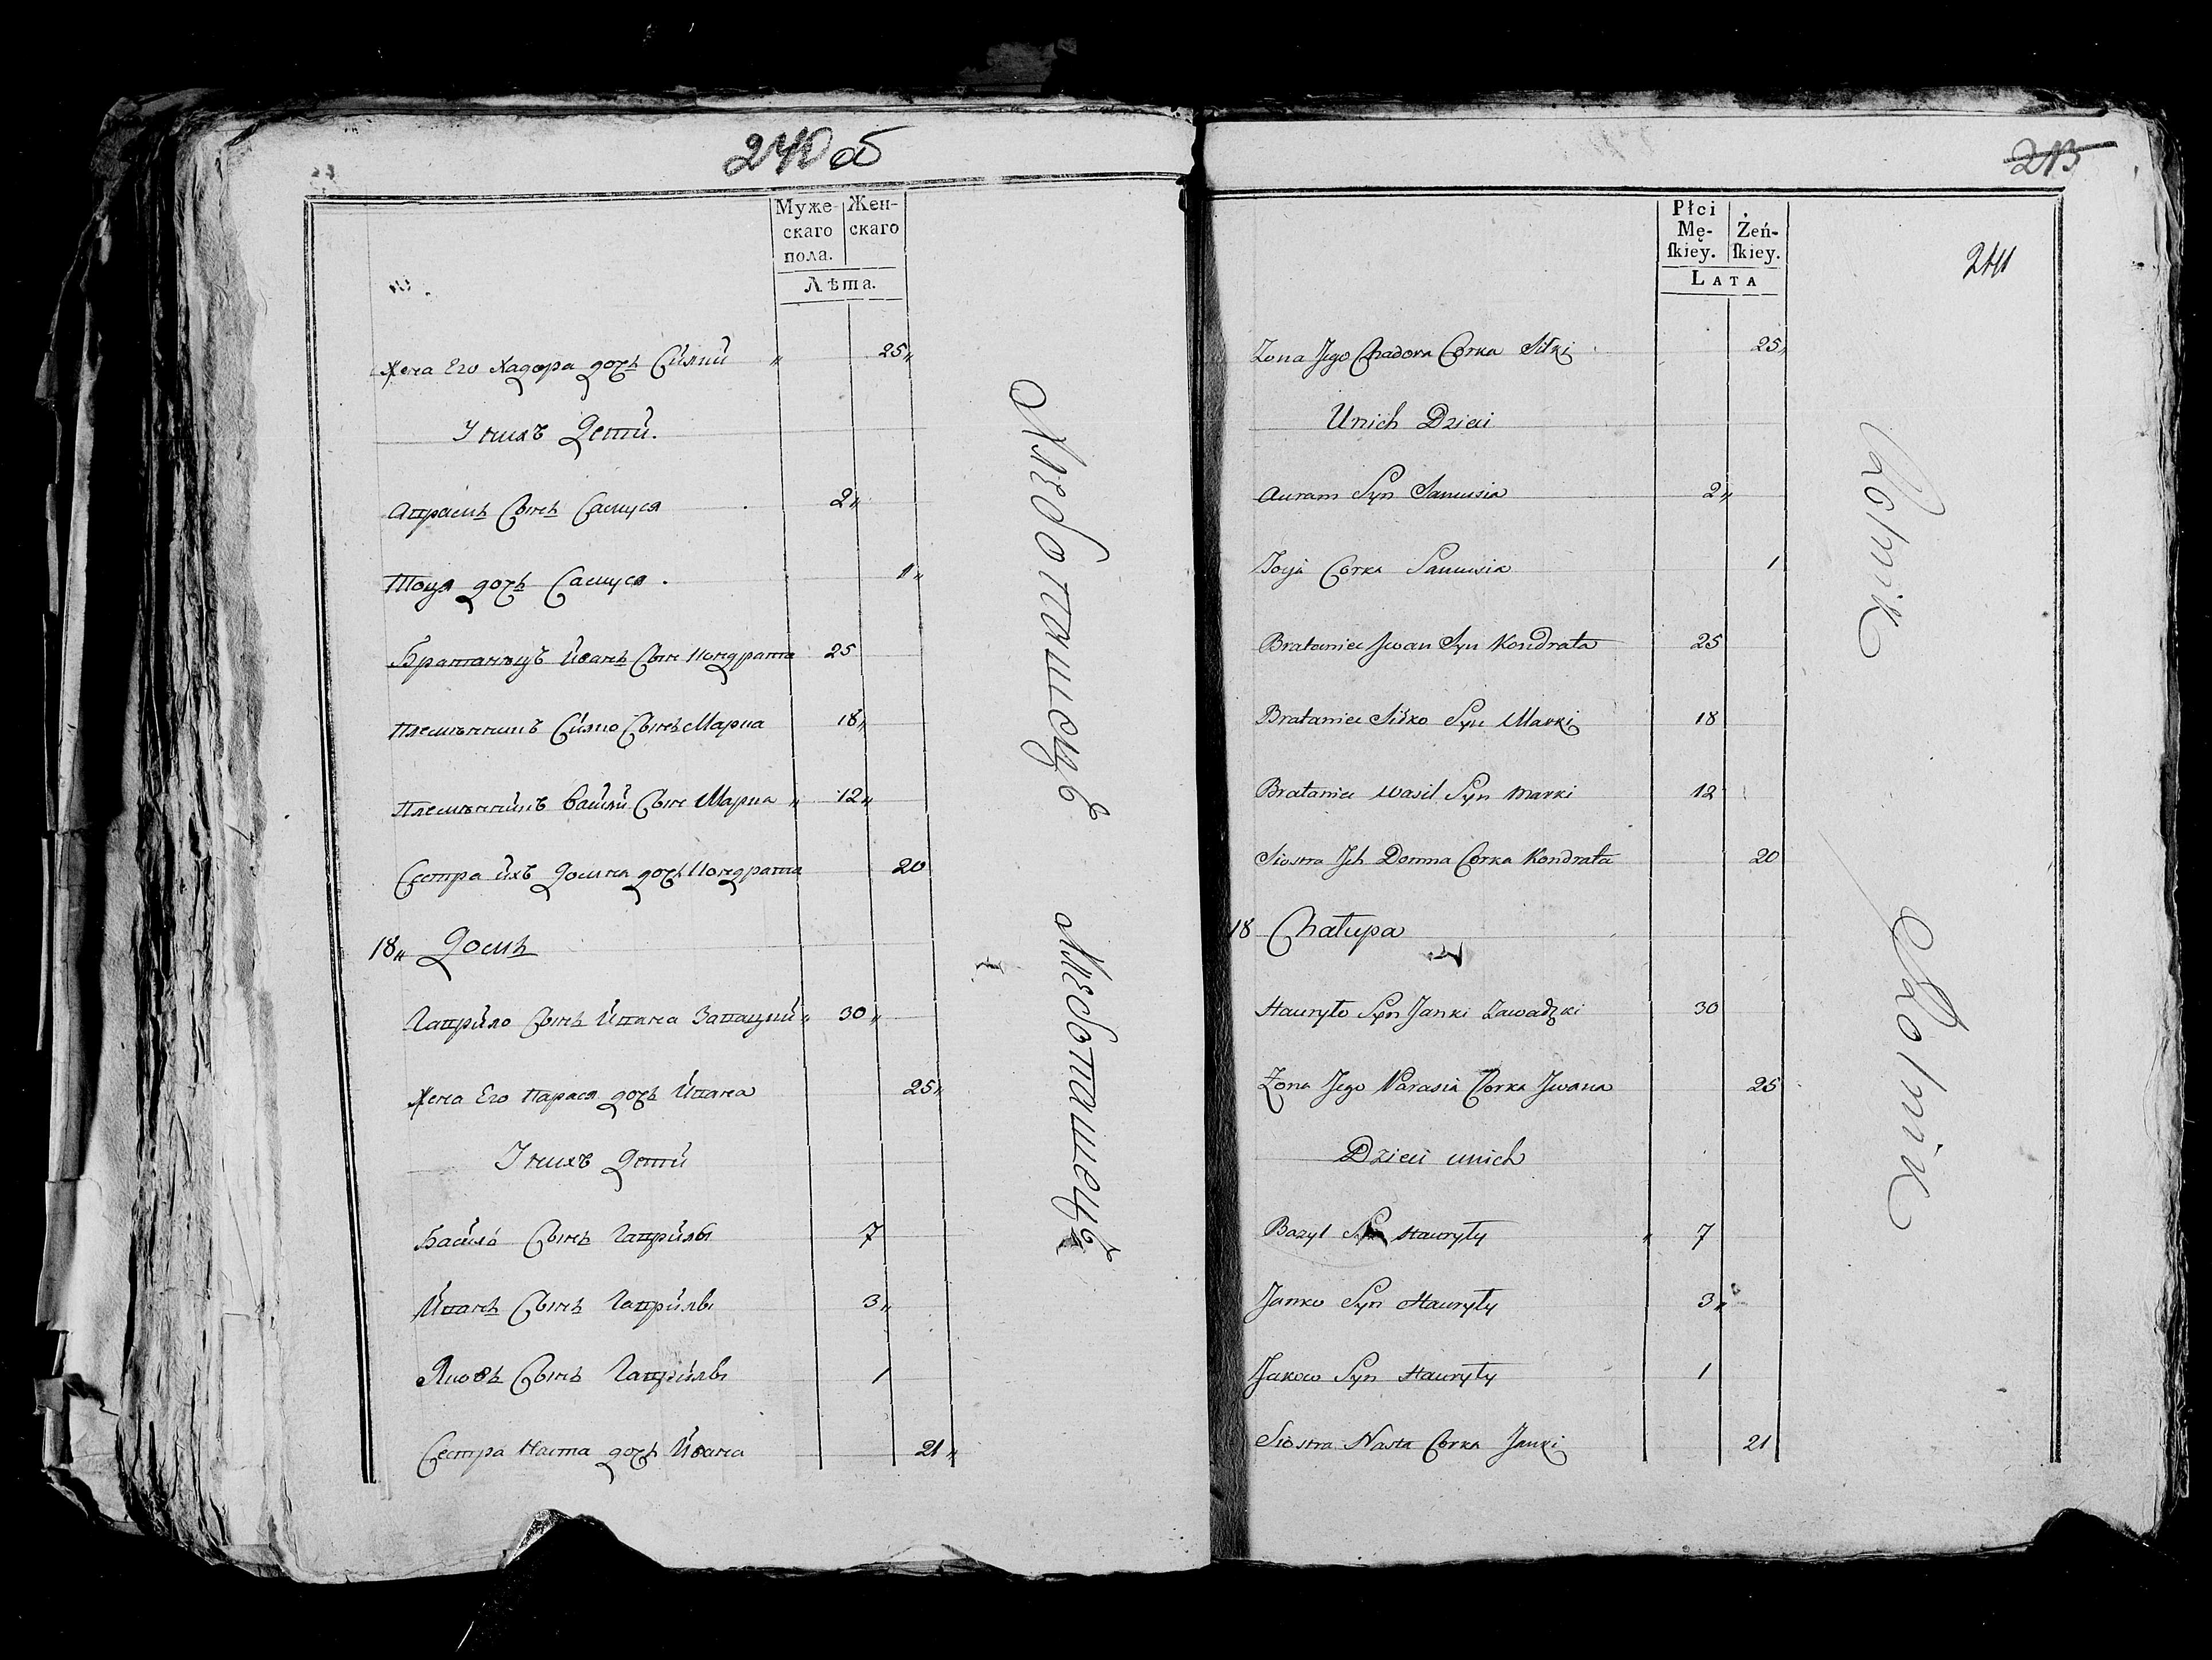 240 об
Муже-
скаго
пола.
Жен-
скаго
Лѣта.
Жена Его Хадора дочь Силки 25
У нихъ Дети.
Аврамъ Сынъ Самуся 2
дочь Самуся 1
Братанецъ Иванъ Сынъ Кондрата 25
Племянникъ Силко Сынъ Марка 18
Племянникъ Васили Сынъ Марка 12
Сестра ихъ Домна дочь Кондрата 20
18 Домъ
Гаврило Сынъ Ивана Завацкии 30
Жена Его Парася дочь Ивана 25
У нихъ Дети
Василь Сынъ Гаврилы 7
Иванъ Сынъ Гаврилы 3
Яковъ Сынъ Гаврилы 1
Сестра Наста дочь Ивана 21
Хлебопашецъ
Хлебопашецъ
213
241
Płci
Mę-
ſkiey.
Żeń-
ſkiey.
LATA
Zona Jego Chadora Corka Silki 25
Unich Dzieci
Auram Syn Samusia 2
Corka Samusia 1
Brataniec Jwan Syn Kondrata 25
Brataniec Silko Syn Marki 18
Brataniec Wasil Syn Marki 12
Siostra Jch Domna Corka Kondrata 20
18 Chałupa
Hauryło Syn Janki Zawadzki 30
Żona Jego Parasia Corka Jwana 25
Dzieci unich
Bazyl Syn Hauryły 7
Janko Syn Hauryły 3
Jakow Syn Hauryły 1
Siostra Nasta Corka Janki 21
Rolnik
Rolnik